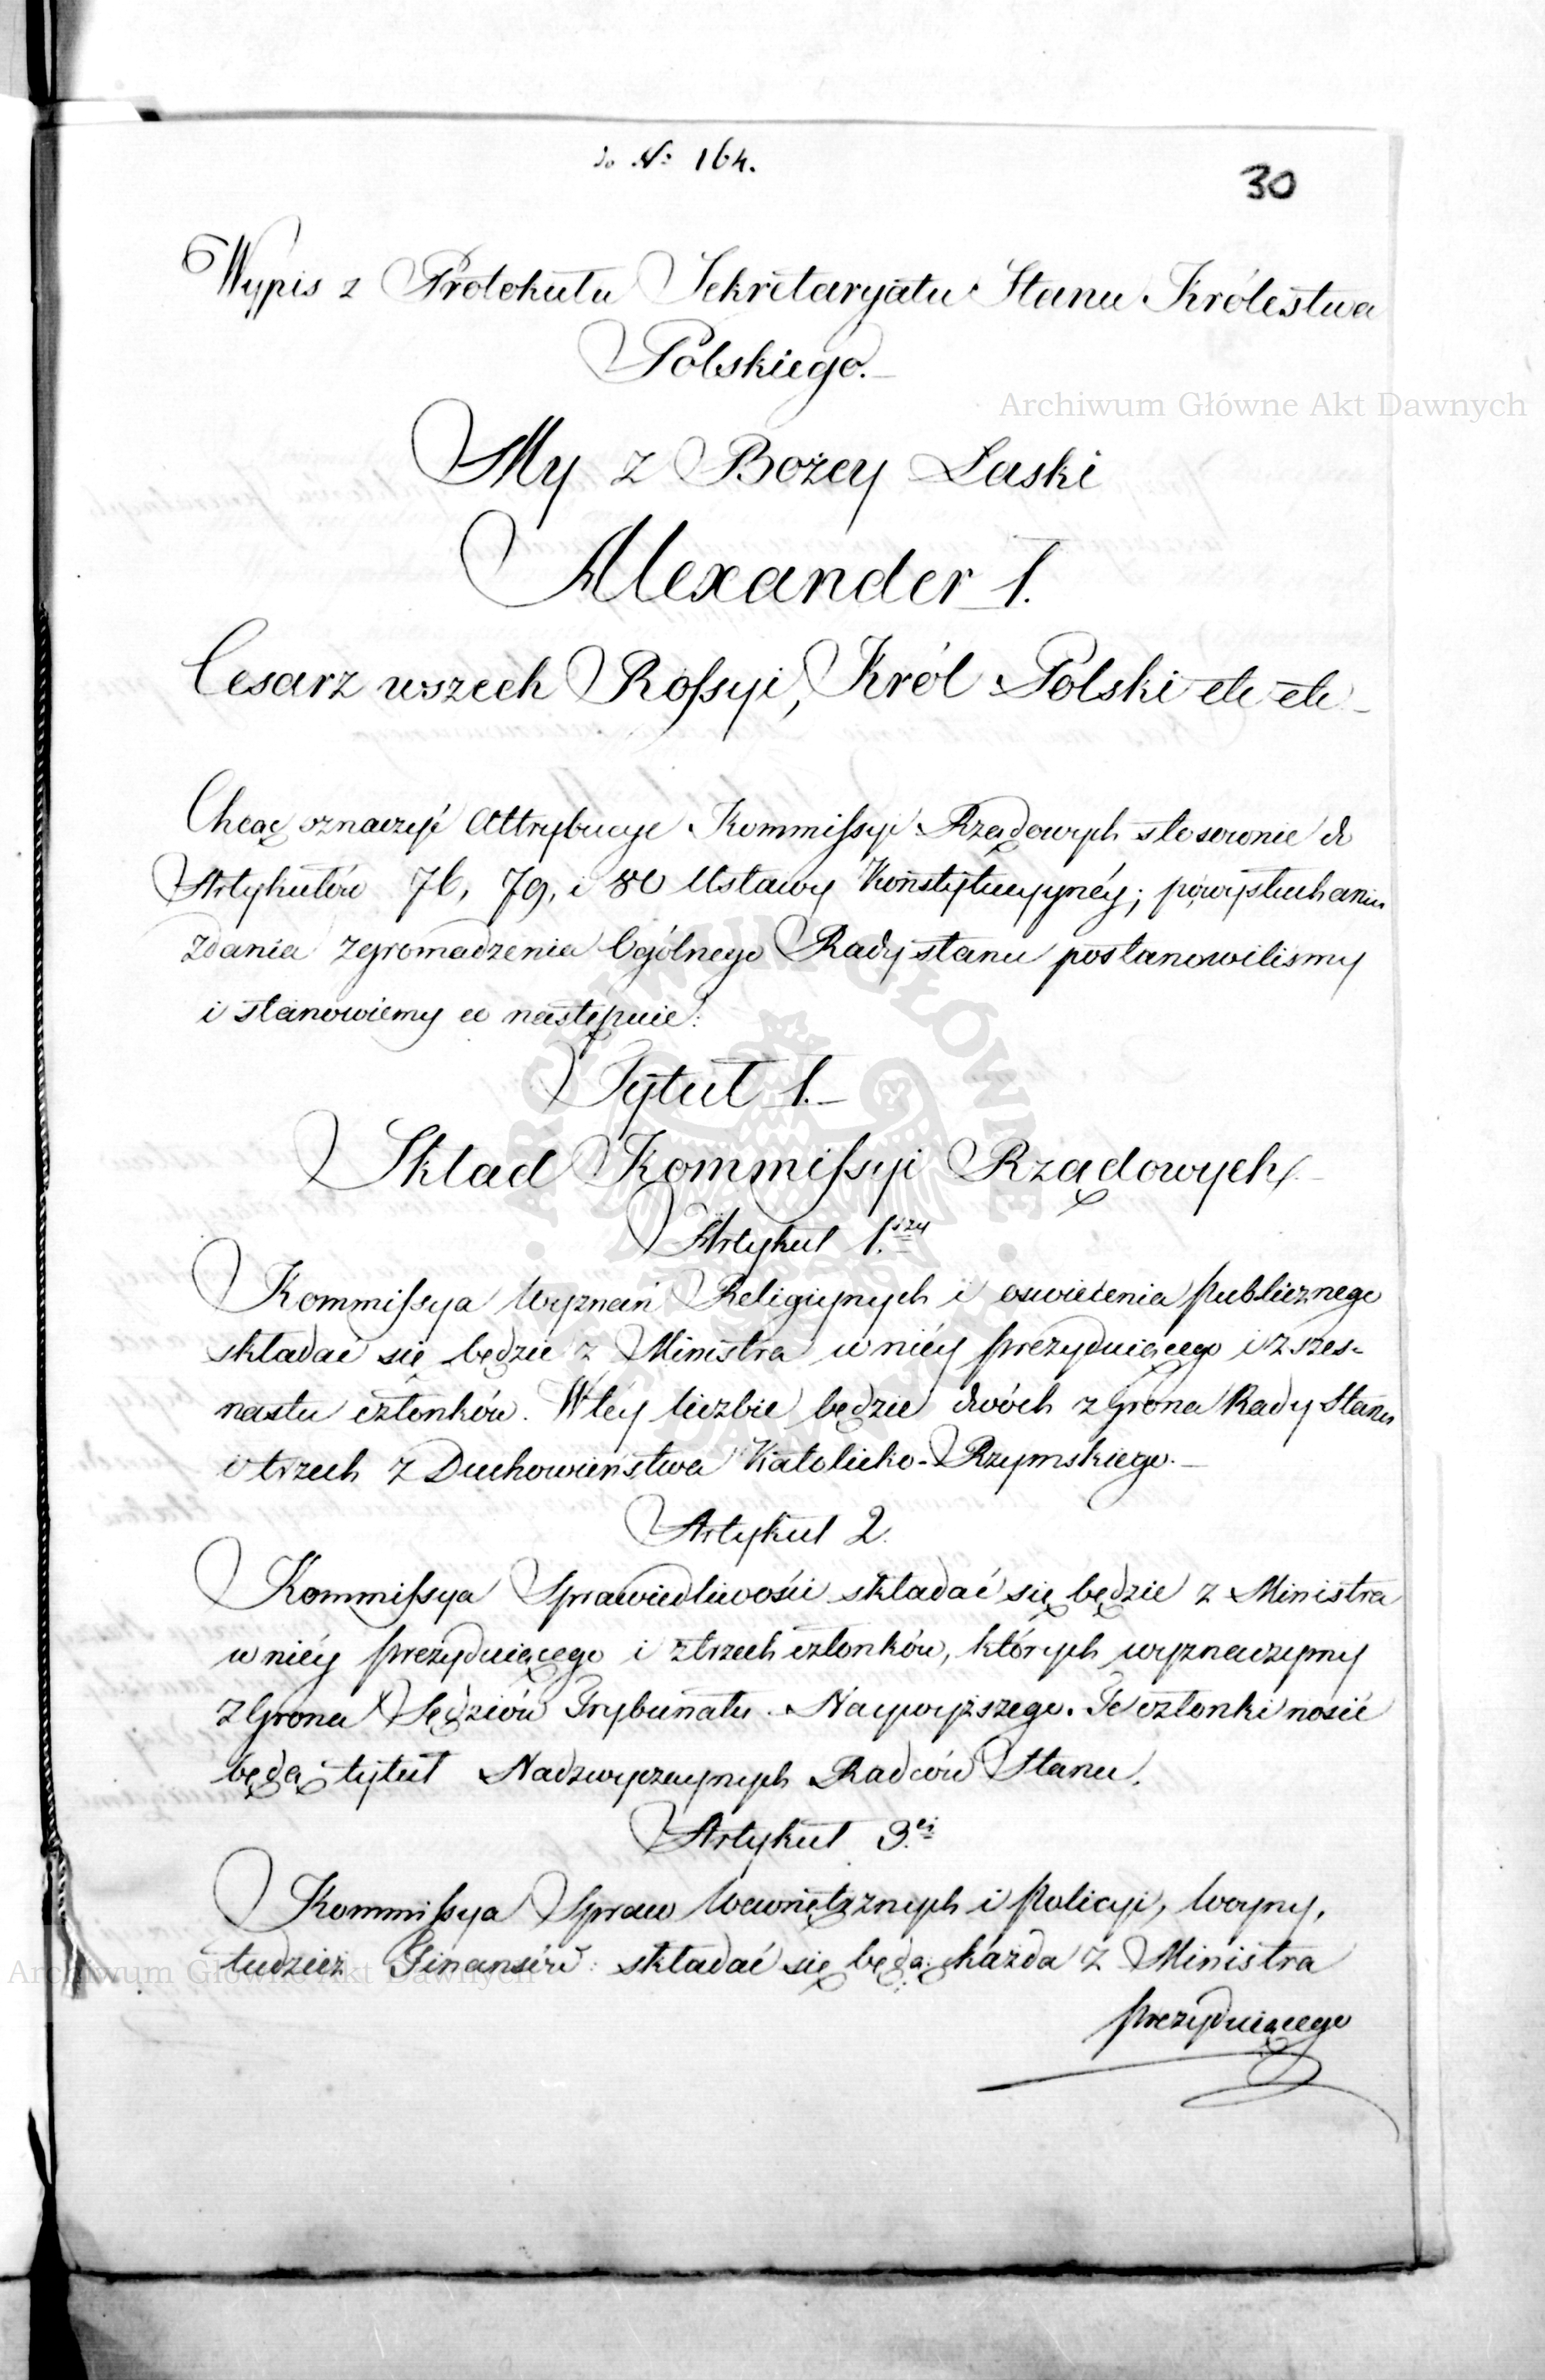 do No 164.
30
Wypis z Protokułu Sekretaryatu Stanu Królestwa
Polskiego.
Archiwum Główne Akt Dawnych
My z Bożey Łaski
Alexander I.
Cesarz wszech Rossyi, Król Polski etc etc
Chcąc oznaczyć Attrybucye Kommissyi Rządowych stosownie do
Artykułów 76, 79, i 80 Ustawy Konstytucyynéy; po wysłuchaniu
Zdania Zgromadzenia Ogólnego Rady stanu postanowilismy
i stanowiemy co następuie:
Tytuł I.
Skład Kommissyi Rządowych
Artykuł 1.szy
Kommissya Wyznań Religiynych i oswiecenia publicznego
składać się będzie z Ministra w niéy prezyduiącego i z szes-
nastu członków. W téy liczbie będzie dwóch z Grona Rady Stanu
i trzech z Duchowieństwa Katolicko-Rzymskiego.
Artykuł 2.
Kommissya Sprawiedliwości składać się będzie z Ministra
w niéy prezyduiącego i z trzech członków, których wyznaczymy
z Grona Sędziów Trybunału Naywyższego. Te członki nosić
będą tytuł Nadzwyczaynych Radców Stanu.
Artykuł 3.ci
Kommissya Spraw Wewnętznych i Policyi, Woyny,
tudzież Finansów: składać się będą: każda z Ministra
Archiwum Główne Akt Dawnych
prezyduiącego